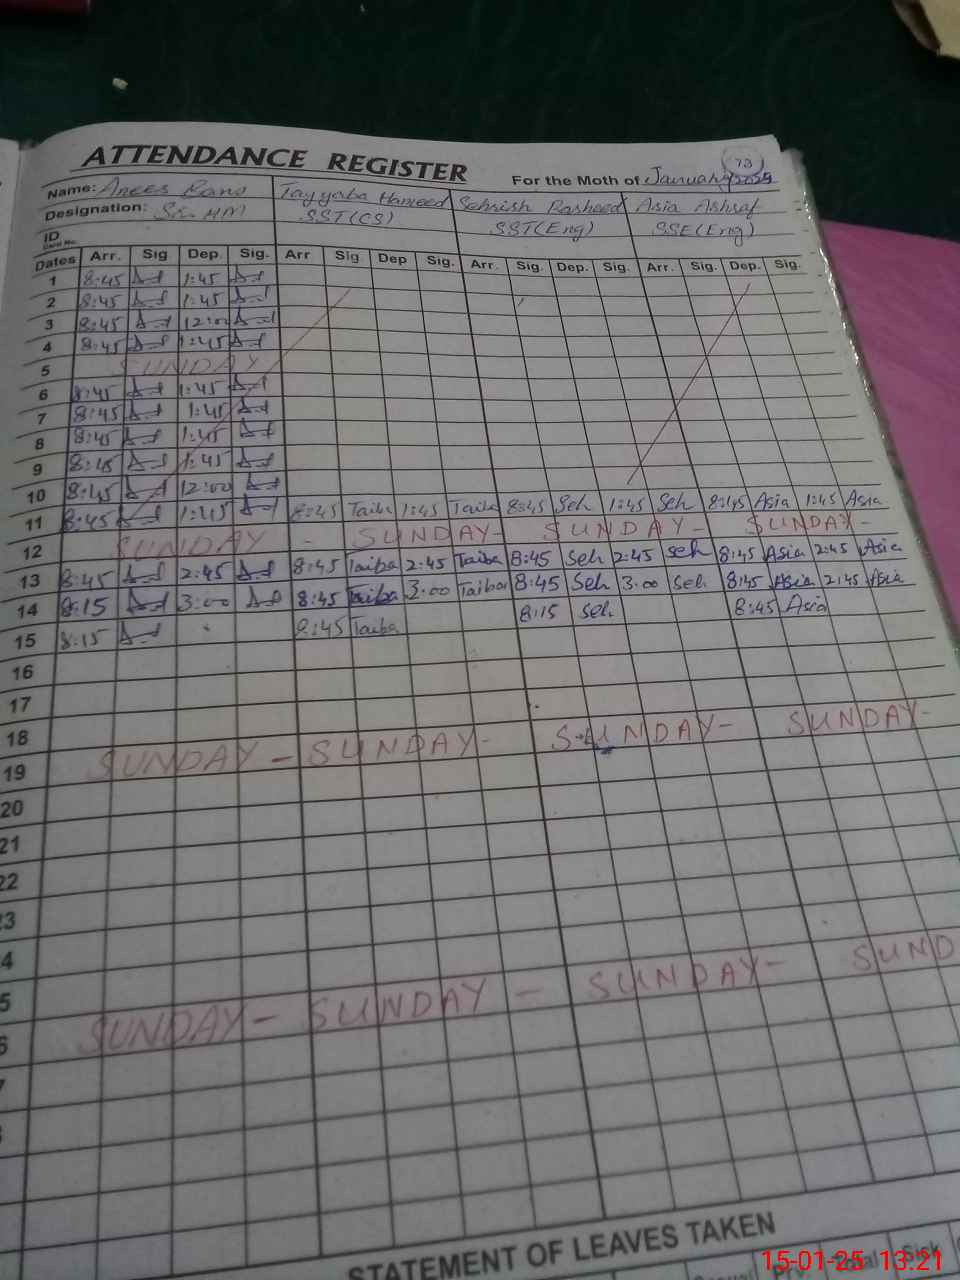 73
ATTENDANCE REGISTER
For the Moth of January 2025
Name: Anees Rano Tayyaba Hameed Sehrish Rasheed Asia Ashraf
Designation: Sr. HM SST(CS) SST(Eng) SSE(Eng)
ID
Card No.
Dates Arr. Sig Dep. Sig. Arr Sig Dep Sig. Arr. Sig. Dep. Sig. Arr. Sig. Dep. Sig.
1 8:45 1:45
2 8:45 1:45
3 8:45 12:00
4 8:45 1:45
5 SUNDAY
6 8:45 1:45
7 8:45 1:45
8 8:45 1:45
9 8:45 1:45
10 8:45 12:00
11 8:45 1:45 8:45 Taiba 1:45 Taiba 8:45 Seh 1:45 Seh 8:45 Asia 1:45 Asia
12 SUNDAY - SUNDAY- SUNDAY- SUNDAY-
13 8:45 2:45 8:45 Taiba 2:45 Taiba 8:45 Seh 2:45 Seh 8:45 Asia 2:45 Asia
14 8:15 3:00 8:45 Taiba 3:00 Taiba 8:45 Seh 3:00 Seh 8:45 Asia 2:45 Asia
15 8:15 8:45 Taiba 8:15 Seh 8:45 Asia
16
17
18
19 SUNDAY - SUNDAY- SUNDAY- SUNDAY-
20
21
22
3
4
5
6 SUNDAY - SUNDAY - SUNDAY- SUND
STATEMENT OF LEAVES TAKEN
Total Sick
15-01-25 13:21